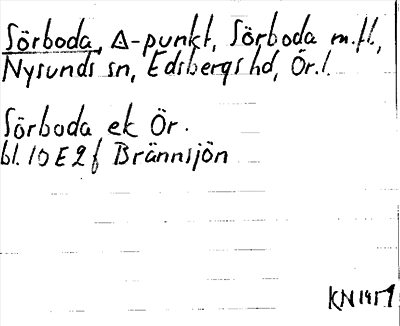 Sörboda, Δ-punkt, Sörboda m.fl.,
Nysunds sn, Edsbergs hd, Ör.l.
Sörboda ek Ör.
bl. 10 E 2 f Brännsjön
KN 1951